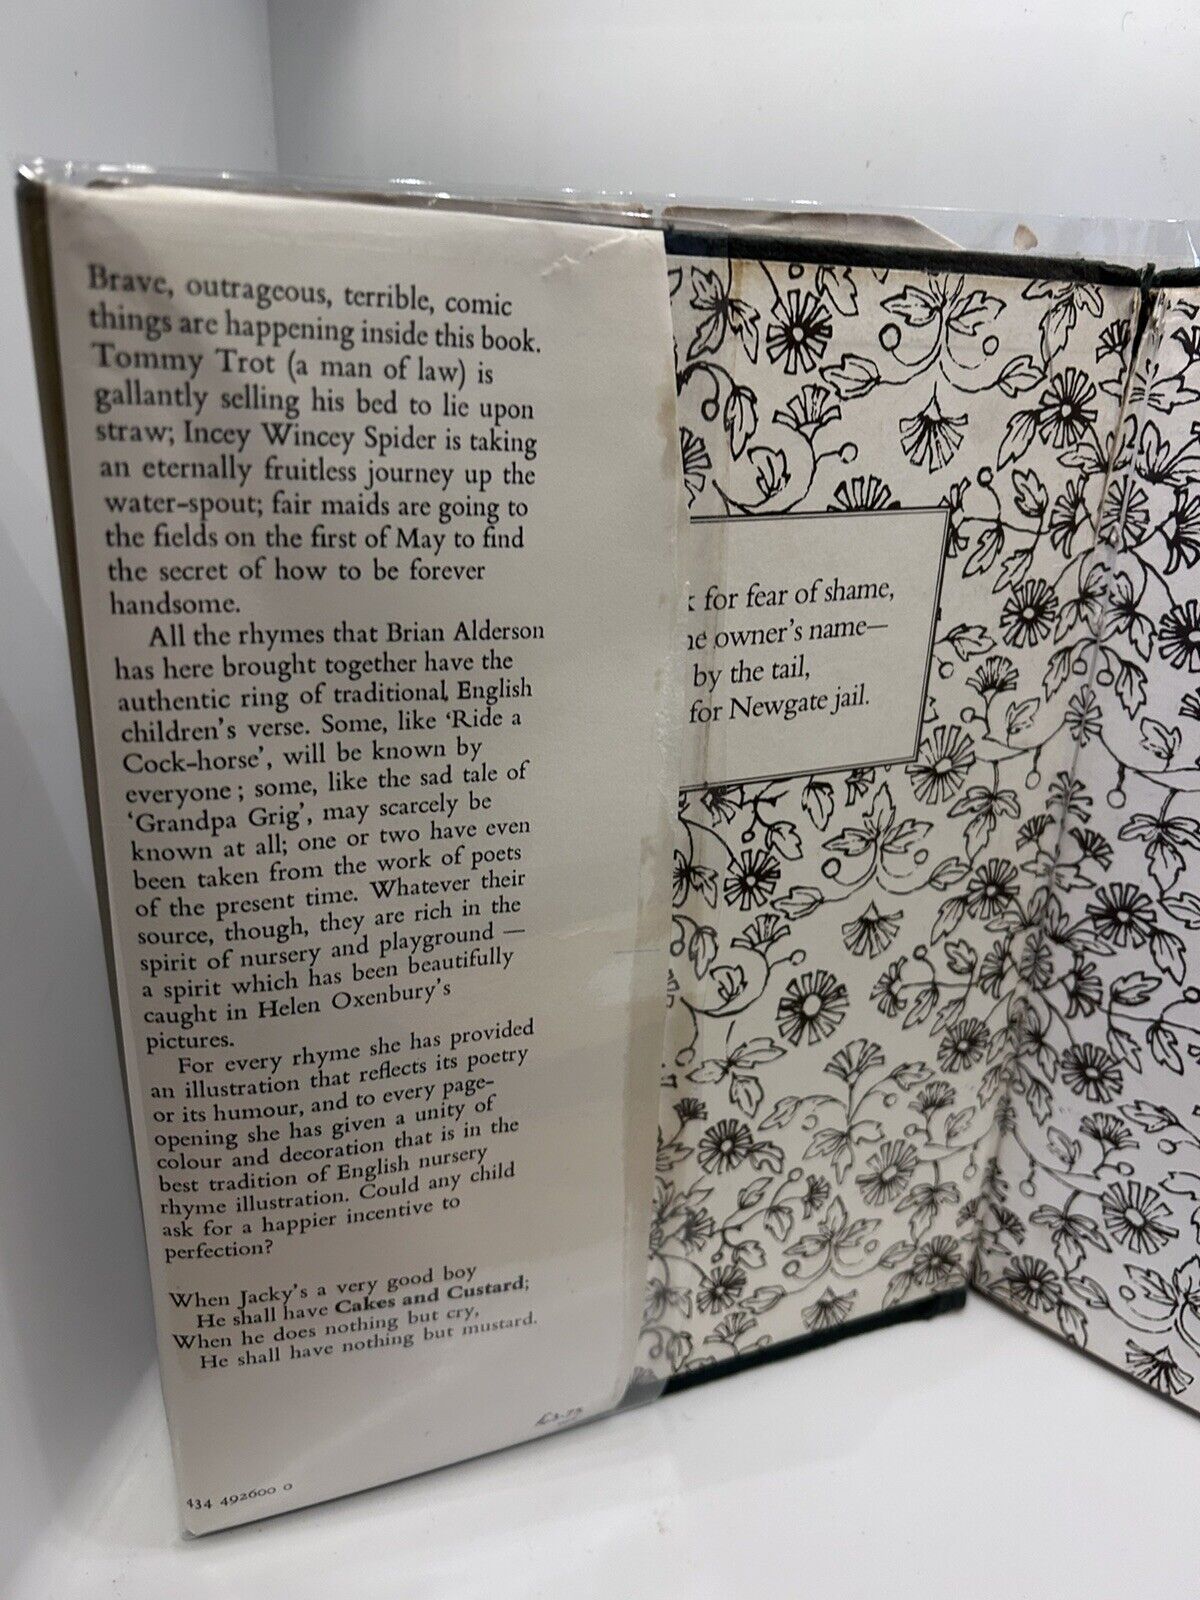 Brave, outrageous, terrible, comic
things are happening inside this book.
Tommy Trot (a man of law) is
gallantly selling his bed to lie upon
straw; Incey Wincey Spider is taking
an eternally fruitless journey up the
water-spout; fair maids are going to
the fields on the first of May to find
the secret of how to be forever
handsome.
All the rhymes that Brian Alderson
has here brought together have the
authentic ring of traditional English
children's verse. Some, like 'Ride a
Cock-horse', will be known by
everyone; some, like the sad tale of
'Grandpa Grig', may scarcely be
known at all; one or two have even
been taken from the work of poets
of the present time. Whatever their
source, though, they are rich in the
spirit of nursery and playground —
a spirit which has been beautifully
caught in Helen Oxenbury's
pictures.
For every rhyme she has provided
an illustration that reflects its poetry
or its humour, and to every page-
opening she has given a unity of
colour and decoration that is in the
best tradition of English nursery
rhyme illustration. Could any child
ask for a happier incentive to
perfection?
When Jacky's a very good boy
He shall have Cakes and Custard;
When he does nothing but cry,
He shall have nothing but mustard.
434 492600 0
for fear of shame,
owner's name—
by the tail,
for Newgate jail.